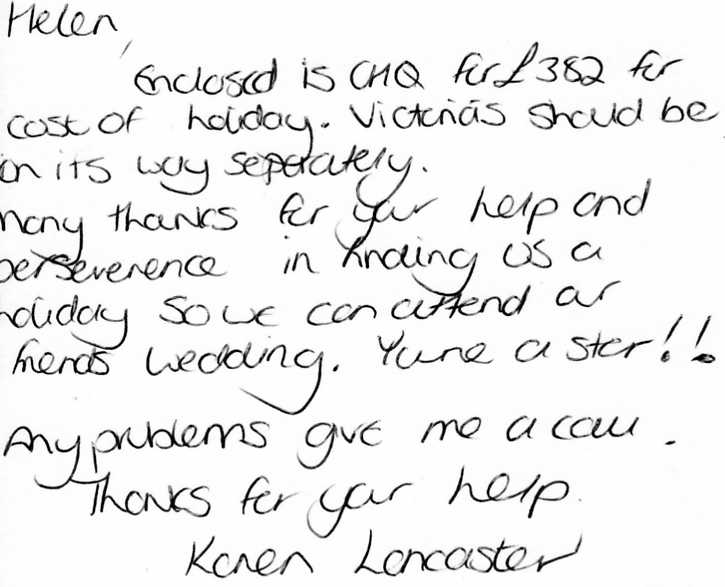 Helen,
Enclosed is CHQ for £382 for
cost of holiday. Victoria's should be
on its way seperately.
Many thanks for your help and
perseverence in finding us a
holiday so we can attend our
friends wedding. You're a star!!
Any problems give me a call.
Thanks for your help.
Karen Lancaster